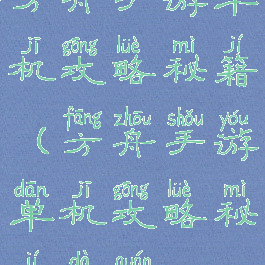 方舟手游单
jī gōng lüè mì jí
机攻略秘籍
fāng zhōu shǒu yóu
(方舟手游
dān jī gōng lüè mì
单机攻略秘
jí dà quán